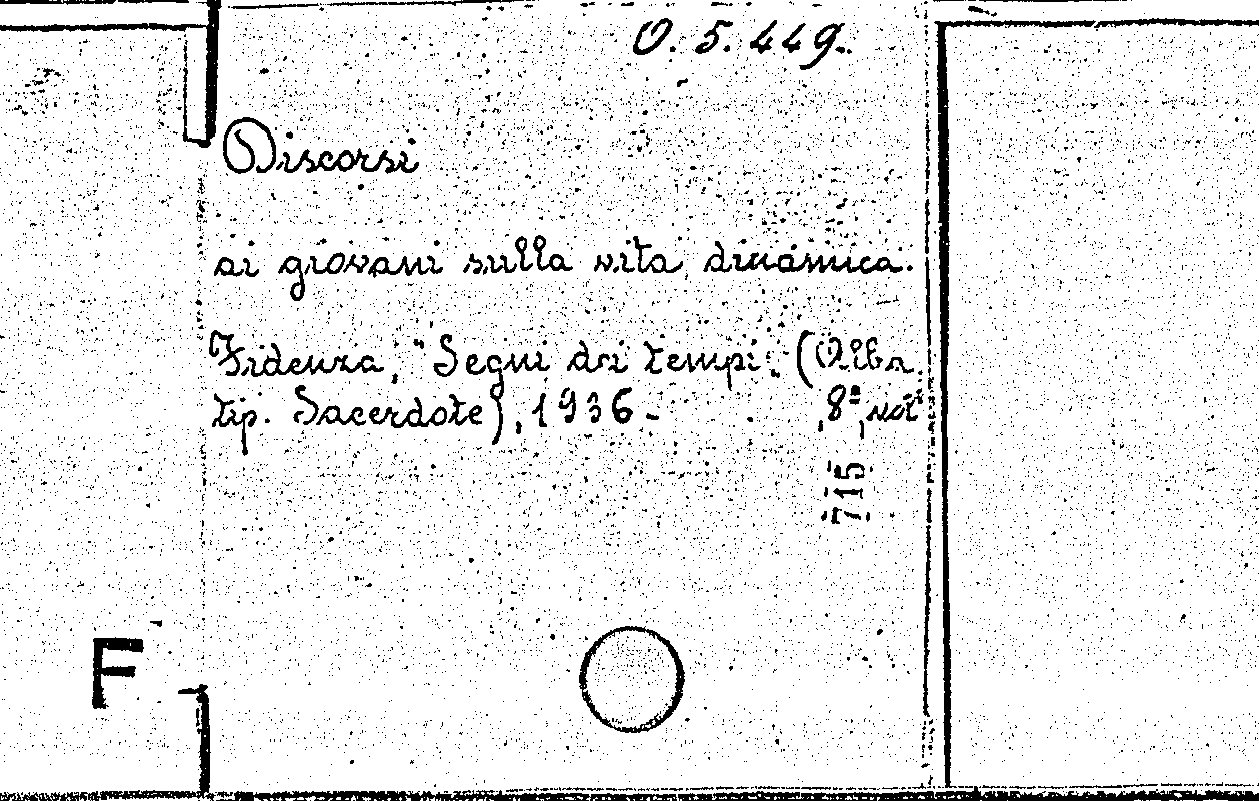 O. 5. 449.
Discorsi
ai giovani sulla vita dinámica.
Fidenza, "Segni dei tempi". (Alba
tip. Sacerdote), 1936 - 8º
715
F